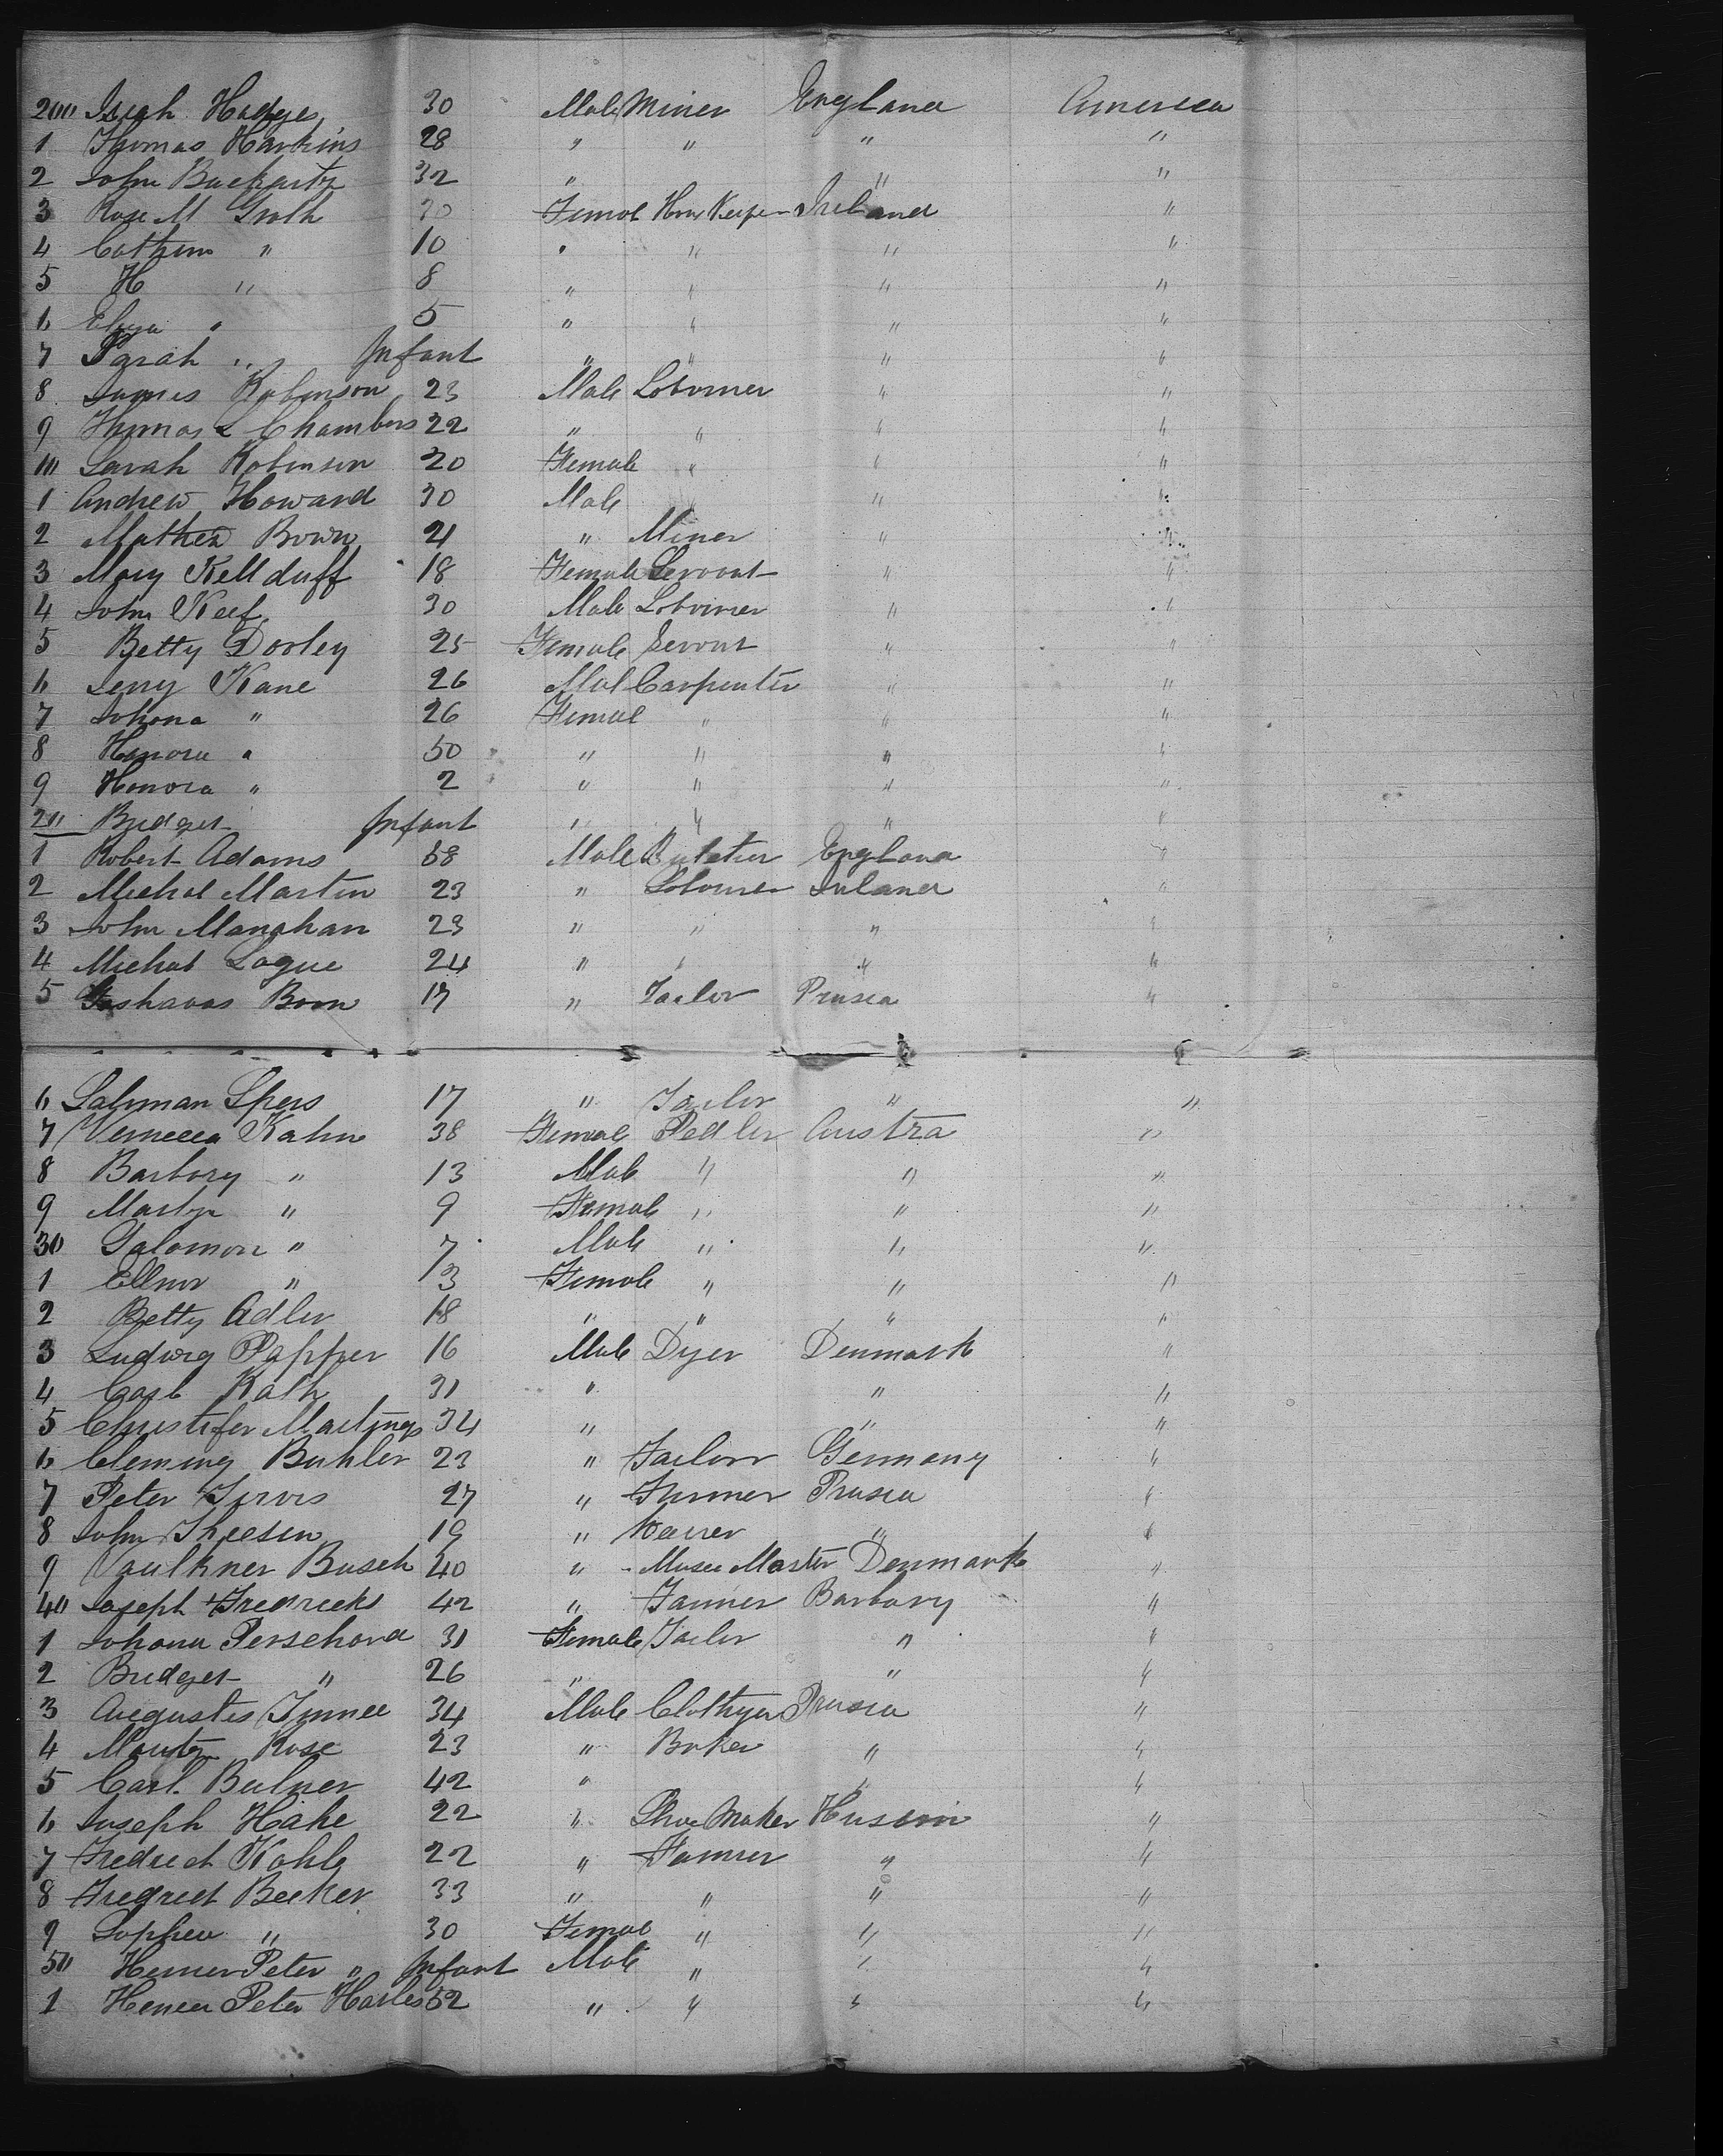 200 Isiah Hodges 30 Male Miner England America
1 Thomas Harkins 28 " " " "
2 John Buckartz 32 " " "
3 Rose M Groth 30 Femal Hous Keeper Ireland "
4 Cathern " 10 " " " "
5 H " 8 " " " "
6 Eliza " 5 " " " "
7 Sarah " Infant " " " "
8 James Robinson 23 Male Labourer " "
9 Thomas L Chambers 22 " " " "
10 Sarah Robinson 20 Female " " "
1 Andrew Howard 30 Male " "
2 Mathew Bown 21 " Miner " "
3 Mary Kellduff 18 Female Servant " "
4 John Keef 30 Male Labourer " "
5 Betty Dooley 25 Female Servant " "
6 Jerry Kane 26 Mal Carpenter " "
7 Johona " 26 Femal " " "
8 Honora " 50 " " " "
9 Honora " 2 " " " "
20 Bridget Infant " " " "
1 Robert Adams 38 Male England "
2 Michal Martin 23 " Labourer Ireland "
3 John Monahan 23 " " " "
4 Michal Logue 24 " " " "
5 Boon 17 " Tailor Prusia "
6 Saloman Spers 17 " Tailor " "
7 Kahn 38 Femal Pedler Austra "
8 Barbory " 13 Male " " "
9 " 9 Female " " "
30 Salomon " 7 Male " " "
1 Ellnor " 3 Female " " "
2 Betty Adler 18 " " " "
3 Ludwig Papper 16 Male Dyer Denmark "
4 Carl Kath 31 " " "
5 Christifer 34 " " "
6 Cleming Buhler 23 " Tailor Germany "
7 Peter 27 " Prusia "
8 John Theesen 19 " " "
9 Faulkner Busch 40 " Music Master Denmark "
40 Joseph Fredricks 42 " Barbary "
1 Johana Persehord 31 Female Tailor " "
2 Bridget " 26 " " "
3 Augustes 34 Male Clothyer Prusia "
4 Rose 23 " Baker " "
5 Carl Bulner 42 " " "
6 Joseph Hake 22 " Shoe Maker "
7 Fredrect Kohle 22 " " "
8 Fredrect Becker 33 " " " "
9 Sophea " 30 Femal " " "
50 Peter " Infant Male " " "
1 Peter Harles 52 " " " "